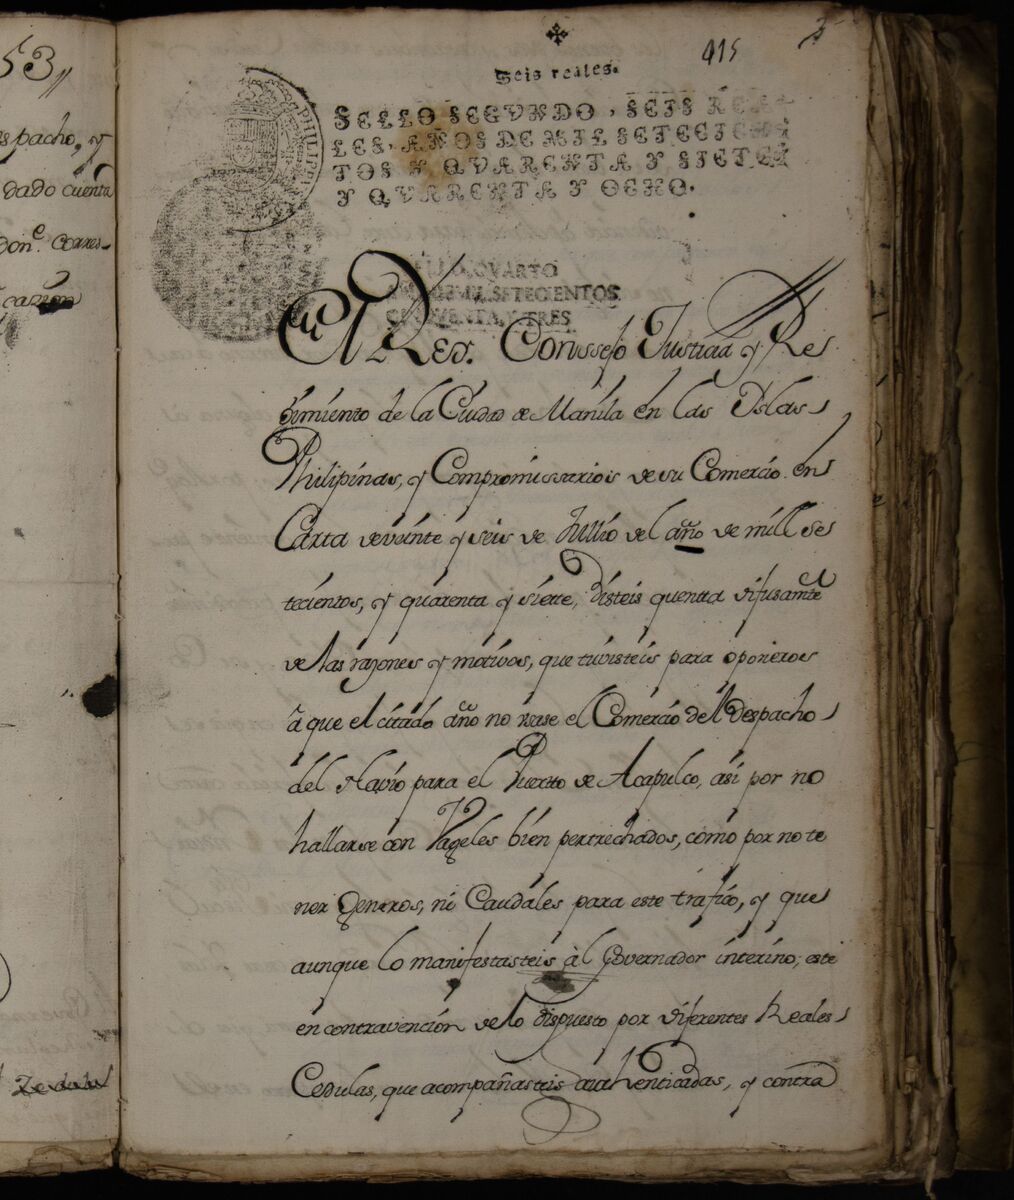 53,,
spacho, y
dado cuenta
Don.e Corres-
415
Seis reales.
SELLO SEGVNDO, SEIS REA-
LES, AÑOS DE MIL SETECIEN-
TOS Y QVARENTA Y SIETE,
Y QVARENTA Y OCHO.
PHILIPP
SELLO QVARTO
AÑO DE MIL SETECIENTOS
CINQVENTA Y TRES
El Rey. Conssejo Justicia y Re
gimiento de la Ciudad de Manila en las Yslas
Philipinas, y Compromissarios de su Comercio. en
Carta de veinte y seis de Jullio del año de mill se
tecientos, y quarenta y siette, disteis quentta difusamte
de las razones y motivos, que tuvisteis para oponeros
à que el citado año no usase el Comercio dell despacho
del Navio para el Puerto de Acapulco, asi por no
hallarse con Vageles bien pertrechados, como por no te
ner Generos, ni Caudales para este trafico, y que
aunque lo manifestasteis àl Governador interino; este
en contravencion de lo dispuesto por diferentes Reales
Cedulas, que acompañasteis authenticadas, y contra